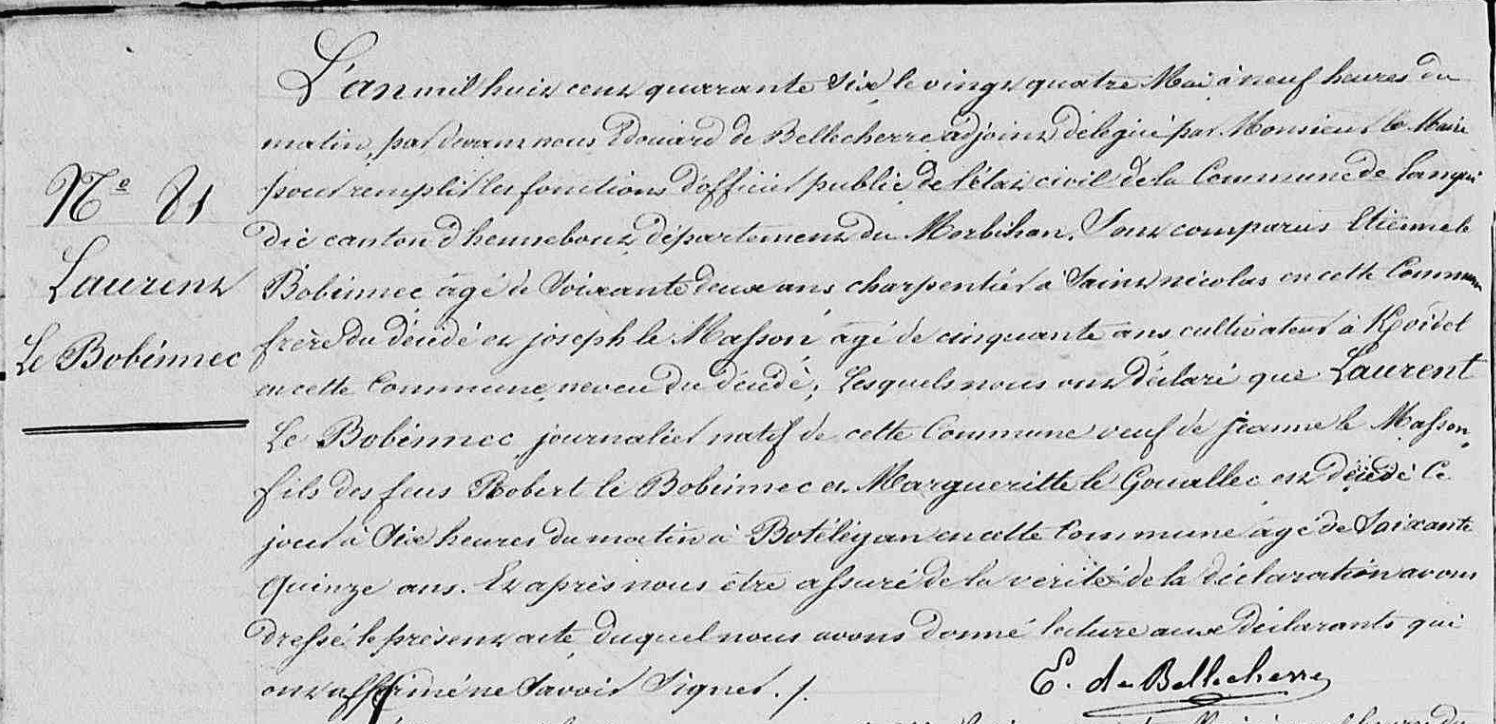 N° 81
Laurent
Le Bobinnec
L'an mil huit cent quarante six le vingt quatre Mai à neuf heures du
matin, par devant nous Edouard de Bellecherre adjoint délégué par Monsieur le Maire
pour remplir les fonctions d'officier public de l'état civil de la Commune de Langui
dic canton d'hennebont département du Morbihan. Sont comparus Etienne le
Bobinnec agé de soixante deux ans charpentier à Saint nicolas en cette Commune
frère du décédé et joseph le Masson agé de cinquante ans cultivateur à Koidet
en cette Commune neveu du décédé; Lesquels nous ont déclaré que Laurent
Le Bobinnec journalier natif de cette Commune veuf de jeanne le Masson,
fils des feus Robert le Bobinnec et Margueritte le Gouallec est décédé Ce
jour à six heures du matin à Botélégan en cette Commune agé de soixante
quinze ans. Et après nous être assuré de la vérité de la déclaration avons
dressé le présent acte duquel nous avons donné lecture aux déclarants qui
ont affirmé ne savoir signer. /.
E. de Bellecherre